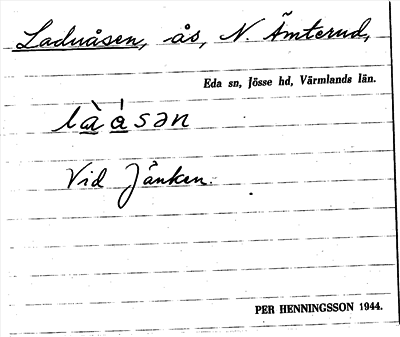 Laduåsen, ås, N. Ämterud,
Eda sn, Jösse hd, Värmlands län.
là̱ á̱sən
Vid Jånken.
PER HENNINGSSON 1944.